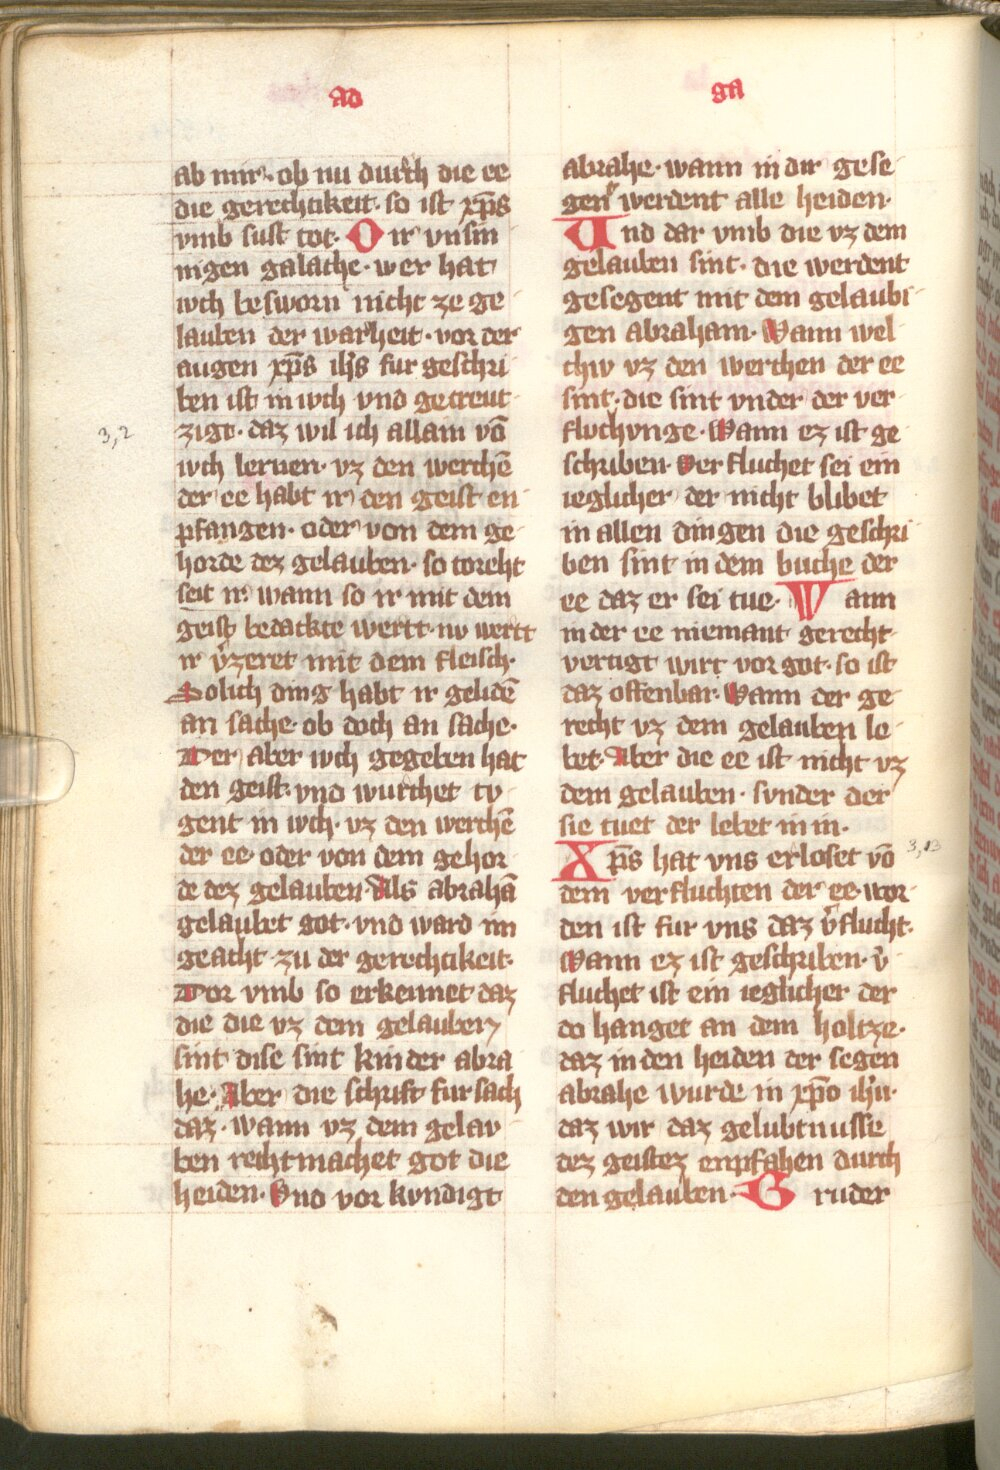 ad
ga
ab mir· ob nu durch die ee
die gerechtikeit· so ist xp̅s
vmb sust tot· O ir vnsin
nigen galathe· wer hat
iuch besworn nicht ze ge
lauben der warheit· vor der
augen xp̅s ih̅s fur geschri
ben ist in iuch vnd gecreut
zigt· daz wil ich allain vo̅
3,2
iuch lernen· vz den werche̅
der ee habt ir den geist en
pfangen· oder von dem ge
horde dez gelauben· so toreht
seit ir· wann so ir mit dem
geist bedackte wertt· nv wertt
ir v̾zeret mit dem fleisch·
Solich ding habt ir gelide̅
an sache· ob doch an sache·
Der aber iuch gegeben hat
den geist· vnd wurchet tv
gent in iuch· vz den werche̅
der ee· oder von dem gehor
de dez gelauben· Als abraha̅
gelaubet got· vnd ward im
geacht zu der gerechtikeit·
Dor vmb so erkennet daz
die die vz dem gelauben
sint dise sint kinder abra
he· Aber die schrift fursach
daz· wann vz dem gelau
ben rechtmachet got die
heiden· Vnd vor kvndigt
abrahe· wann in dir gese
gent werdent alle heiden·
Vnd dar vmb die vz dem
gelauben sint· die werdent
gesegent mit dem gelaubi
gen abraham· Wann wel
chiv vz den werchen der ee
sint· die sint vnder der ver
fluchvnge· Wann ez ist ge
schriben· Verfluchet sei ein
ieglicher der nicht blibet
in allen dingen die geschri
ben sint in dem buche der
ee daz er sei tue· Wann
in der ee niemant gerecht
vertigt wirt vor got· so ist
daz offenbar· Wann der ge
recht vz dem gelauben le
bet· Aber die ee ist nicht vz
dem gelauben· svnder der
sie tuet der lebet in in·
Xp̅s hat vns erloset vo̅
3,13
dem verfluchten der ee· wor
den ist fur vns daz v̾flucht·
Wann ez ist geschriben· v̾
fluchet ist ein ieglicher der
do hanget an dem holtze·
daz in den heiden der segen
abrahe wurde in xp̅o ih̅u·
daz wir daz gelubtnusse
dez geistez enpfahen durch
den gelauben· Bruder